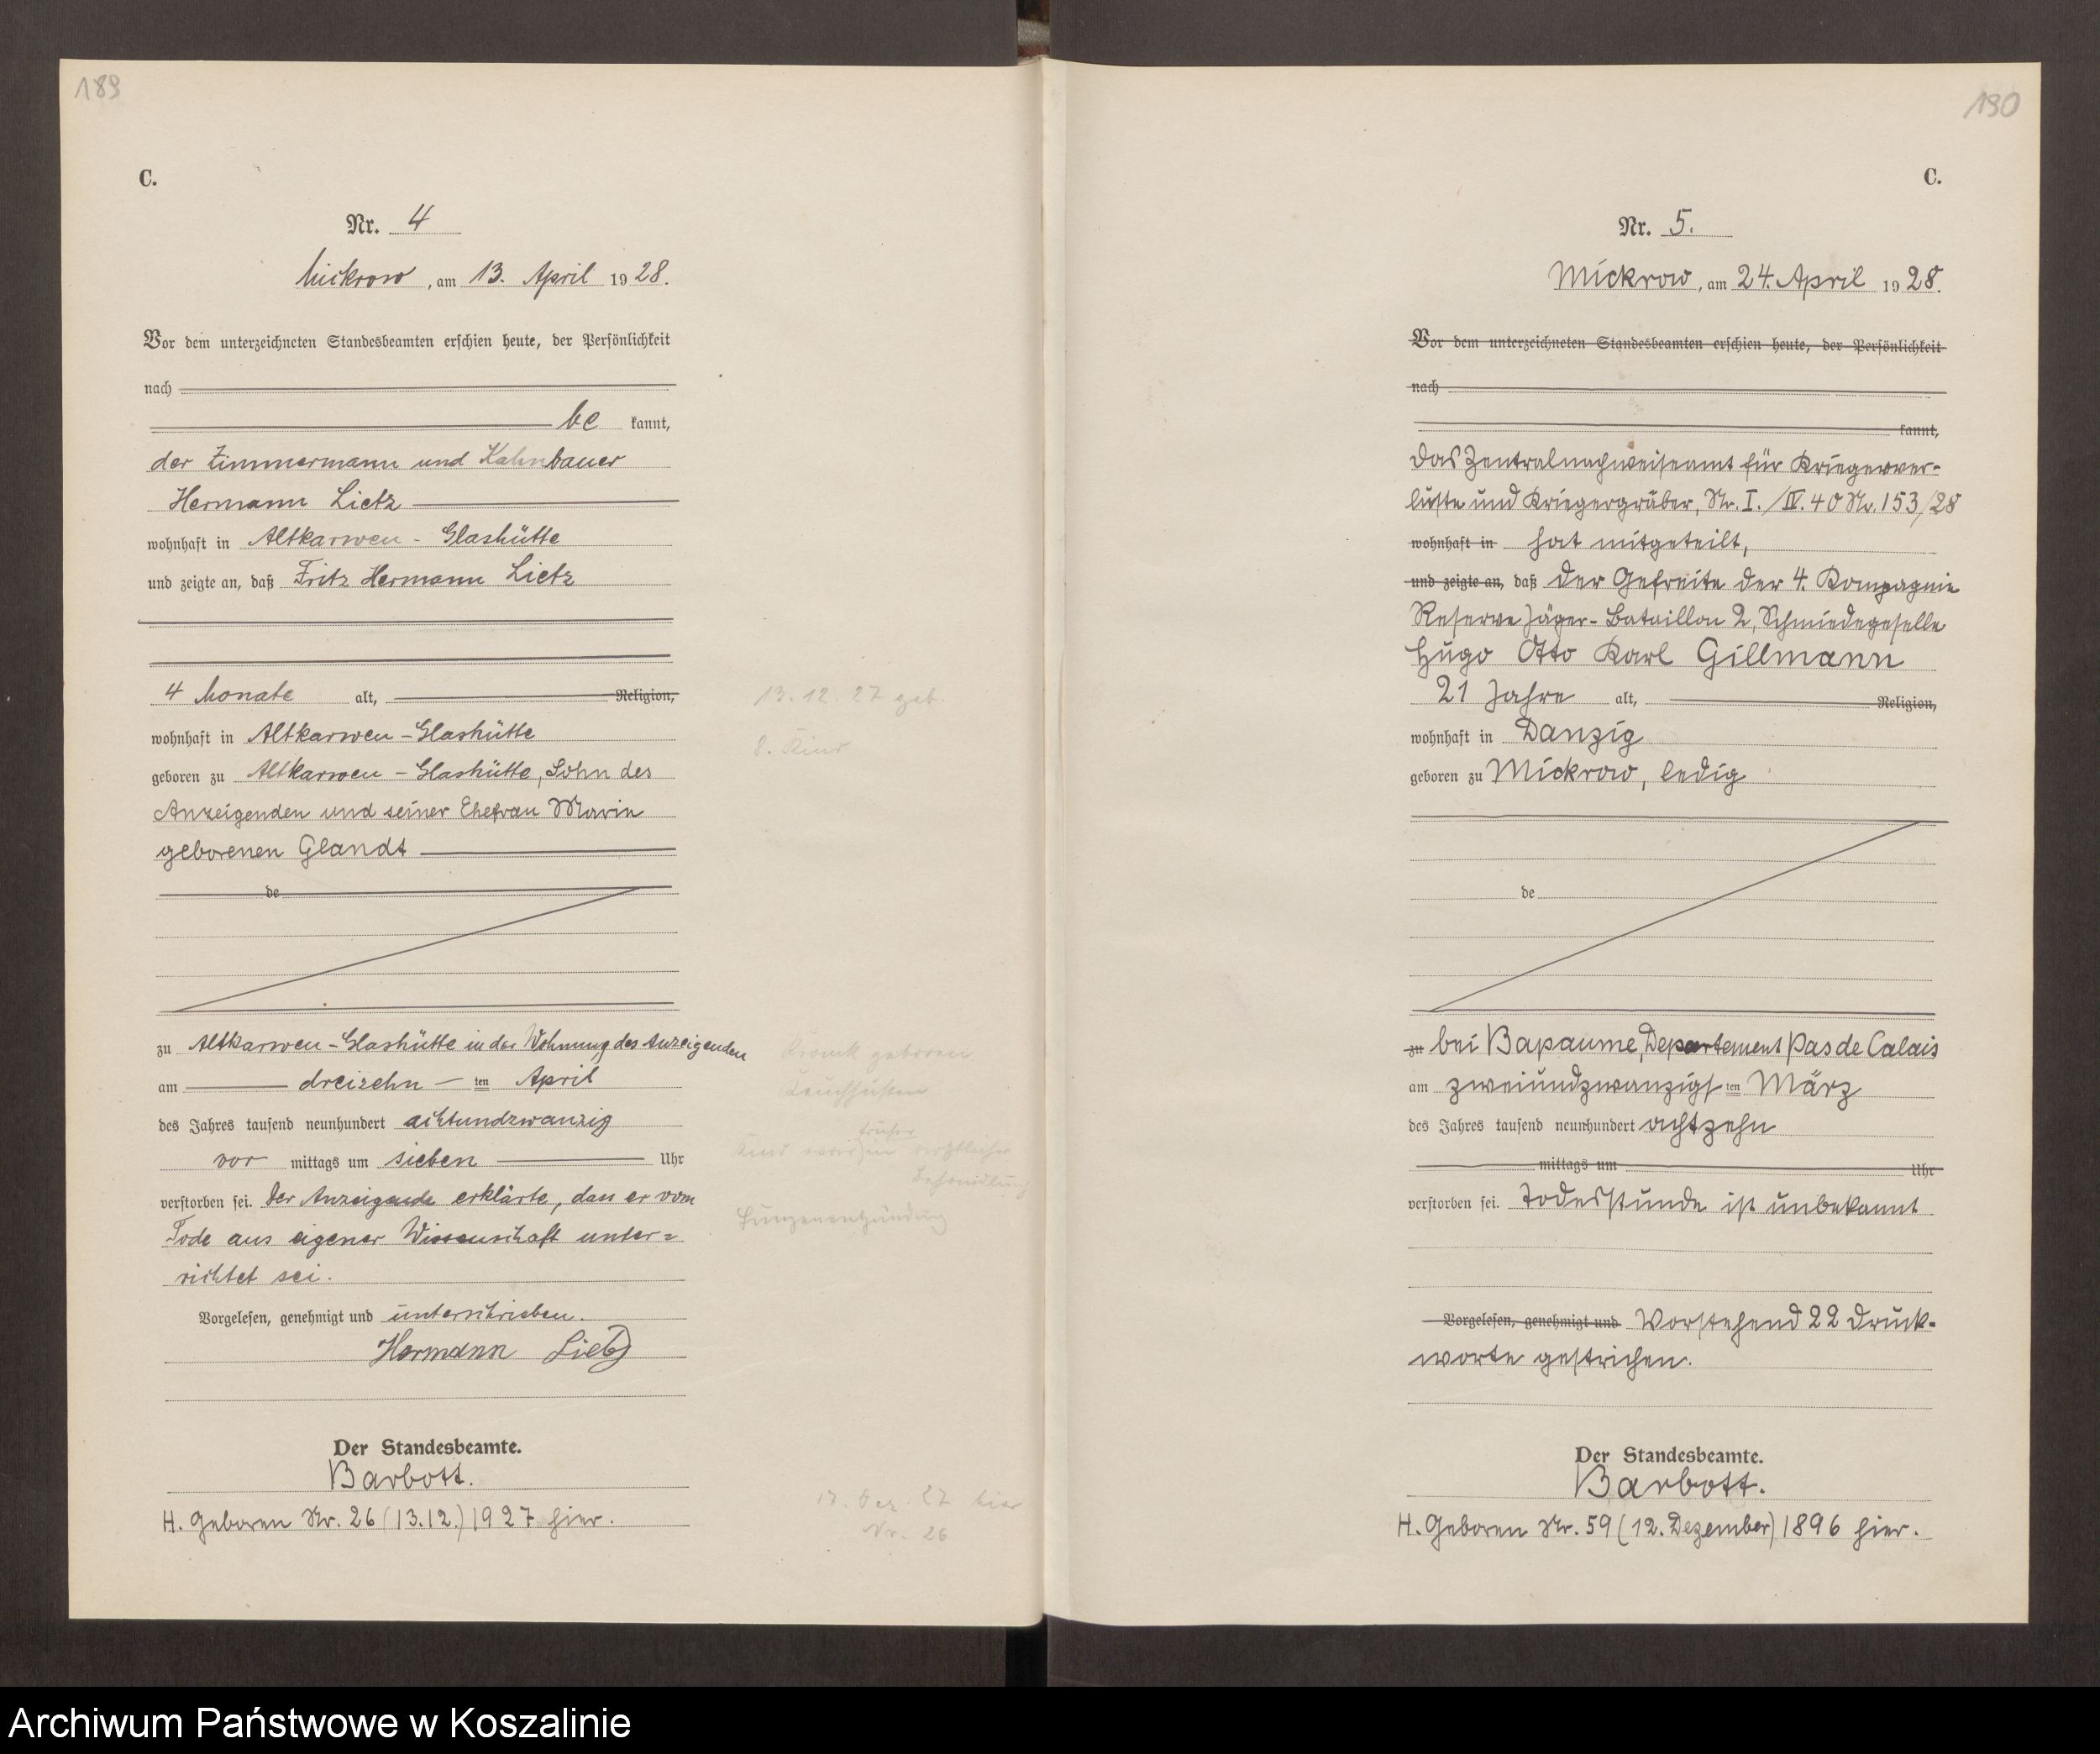 189
C.
Nr. 4
Mickrow, am 13. April 1928.
Vor dem unterzeichneten Standesbeamten erschien heute, der Persönlichkeit
nach
be kannt,
der Zimmermann und Kahnbauer
Hermann Lietz
wohnhaft in Altkarwen - Glashütte
und zeigte an, daß Fritz Hermann Lietz
4 Monate alt, Religion,
wohnhaft in Altkarwen - Glashütte
geboren zu Altkarwen - Glashütte, Sohn des
Anzeigenden und seiner Ehefrau Marie
geborenen Glandt
de
zu Altkarwen - Glashütte in der Wohnung des Anzeigenden
am dreizehn ten April
des Jahres tausend neunhundert achtundzwanzig
vor mittags um sieben Uhr
verstorben sei. Der Anzeigende erklärte, dass er vom
Tode aus eigener Wissenschaft unter=
richtet sei.
Vorgelesen, genehmigt und unterschrieben.
Hermann Lietz
Der Standesbeamte.
Barbott.
H. Geboren Nr. 26 (13.12.) 1927 hier.
13.12.27 geb.
8. Kind
Krank geboren
Keuchhusten
früher
Kind war in ärztlicher
Behandlung
Lungenentzündung
17. Dez. 27 hier
Nr. 26
190
C.
Nr. 5.
Mickrow, am 24. April 1928.
Vor dem unterzeichneten Standesbeamten erschien heute, der Persönlichkeit
nach
kannt,
das Zentralnachweiseamt für Kriegerver-
luste und Kriegergräber, Nr. I./IV. 40 Nr. 153/28
wohnhaft in hat mitgeteilt,
und zeigte an, daß der Gefreite der 4. Kompagnie
Reserve Jäger-Bataillon 2, Schmiedegeselle
Hugo Otto Karl Gillmann
21 Jahre alt, Religion,
wohnhaft in Danzig
geboren zu Mickrow, ledig
de
zu bei Bapaume, Departement Pas de Calais
am zweiundzwanzigs ten März
des Jahres tausend neunhundert achtzehn
mittags um Uhr
verstorben sei. Todesstunde ist unbekannt
Vorgelesen, genehmigt und Vorstehend 22 Druck-
worte gestrichen.
Der Standesbeamte.
Barbott.
H. Geboren Nr. 59 (12. Dezember) 1896 hier.
Archiwum Państwowe w Koszalinie